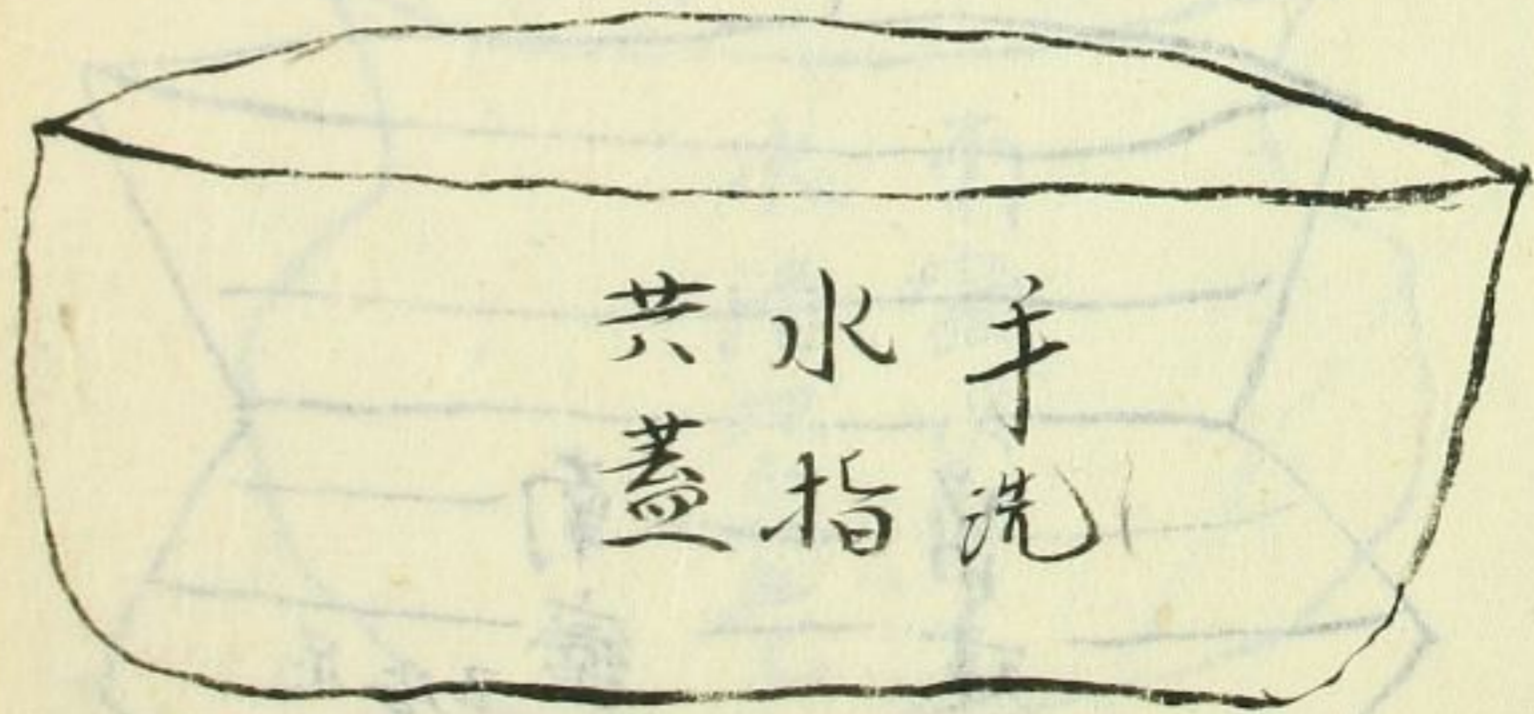 手洗
水指
共蓋